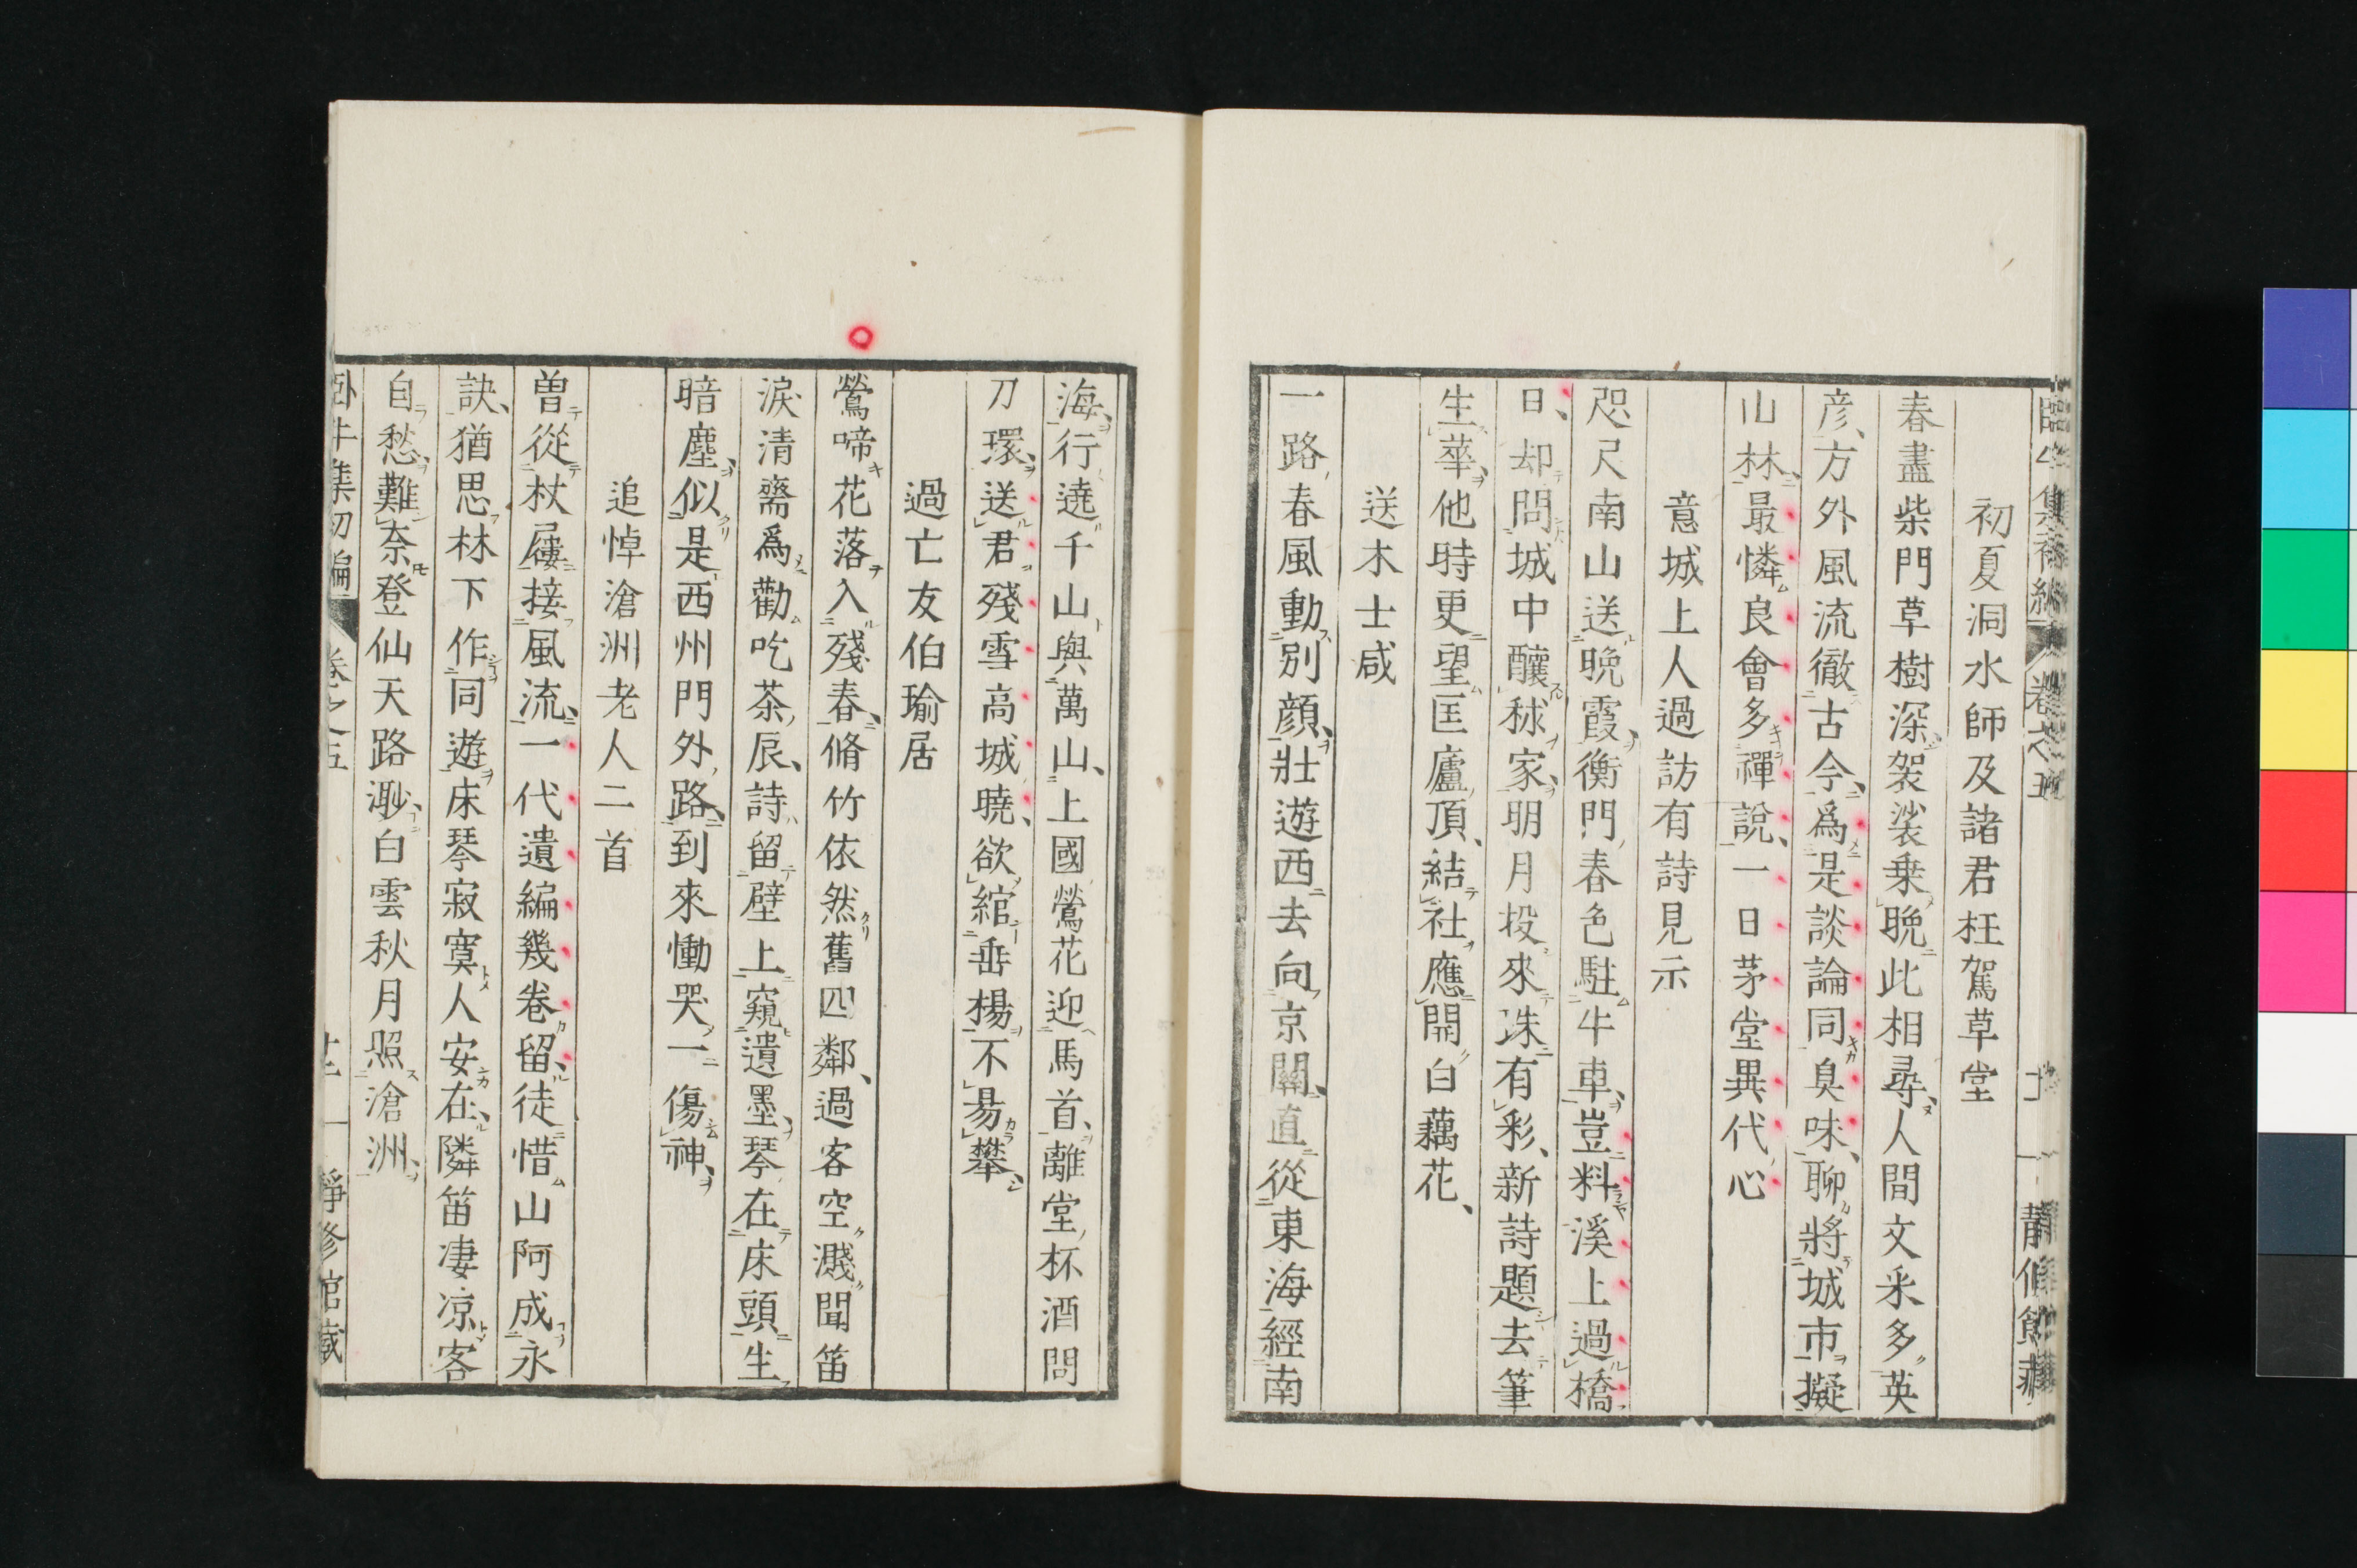 初夏洞水師及諸君枉駕草堂
春盡柴門草樹深袈裟乗晩此相尋人間文采多英
彦方外風流徹古今爲是談論同臭味聊將城市擬
山林最憐良會多禪說一日茅堂異代心
意城上人過訪有詩見示
咫尺南山送晩霞衡門春色駐牛車豈料溪上過橋
日却問城中釀秫家明月投來珠有彩新詩題去筆
生華他時更望匡廬頂結社應開白藕花
送木士咸
一路春風動別顔壯遊西去向京關直從東海經南
海行遶千山與萬山上國鶯花迎馬首離堂杯酒問
刀環送君殘雪高城曉欲綰垂楊不易攀
過亡友伯瑜居
鶯啼花落入殘春脩竹依然舊四鄰過客空濺聞笛
淚清齋爲勸吃茶辰詩留壁上窺遺墨琴在床頭生
暗塵似是西州門外路到來慟哭一傷神
追悼滄洲老人二首
曽從杖屨接風流一代遺編幾卷留徒惜山阿成永
訣猶思林下作同遊床琴寂寞人安在隣笛凄凉客
自愁難奈登仙天路渺白雲秋月照滄洲
卧牛集初編 卷之五 十二 靜修館藏